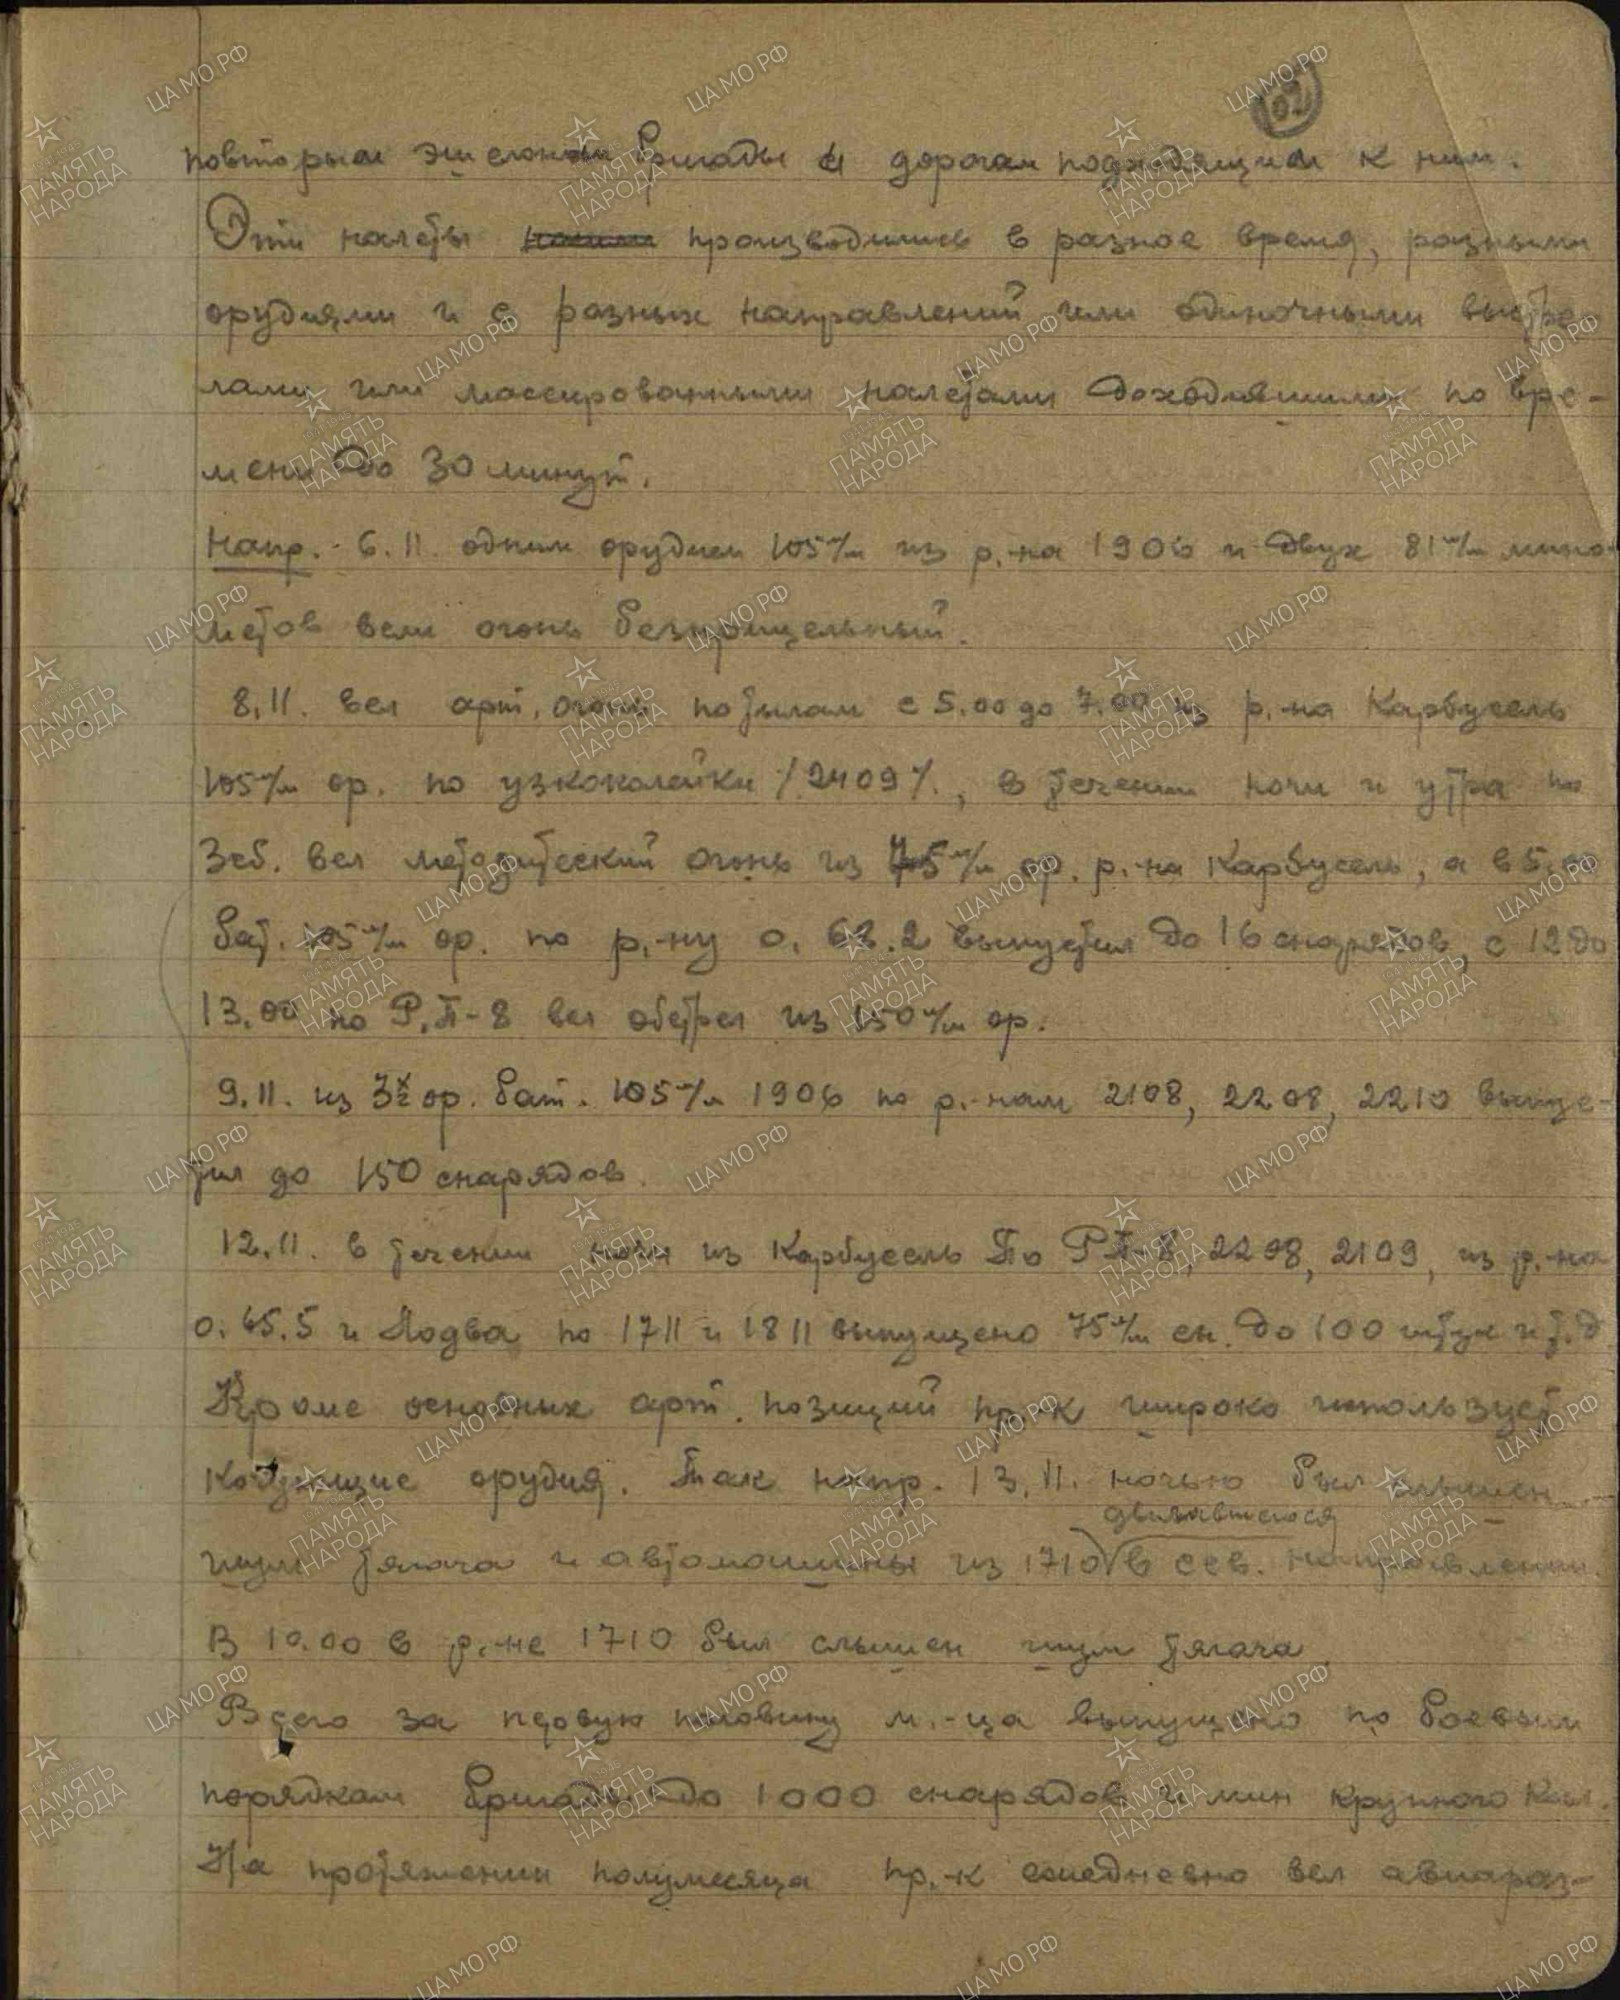 повторым эшелонам бригады и дорогам подходящим к ним.
Эти налеты производились в разное время, разными
орудиями и с разных направлений или одиночными выстре-
лами или массированными налетами доходившими по вре-
мени до 30 минут.
Напр. - 6.11. одним орудием 105 м/м из р.-на 1906 и двух 81 м/м мино-
метов вели огонь безприцельный.
8.11. вел арт. огонь по тылам с 5.00 до 7.00 из р.-на Карбусель
105 м/м ор. по узкоколейки /2409/., в течении ночи и утра по
Зеб. вел методический огонь из 75 м/м ор. р.-на Карбусель, а в 5.00
бат. 105 м/м ор. по р.-ну о. 63.2 выпустил до 16 снарядов, с 12 до
13.00 по Р.П-8 вел обстрел из 150 м/м ор.
9.11. из 3х ор. бат. 105 м/м 1906 по р.-нам 2108, 2208, 2210 выпус-
тил до 150 снарядов.
12.11. в течении ночи из Карбусель По РП-8, 2208, 2109, из р.-на
о. 65.5 и Лодва по 1711 и 1811 выпущено 75 м/м сн. до 100 штук и т.д
Кроме основных арт. позиций пр-к широко использует
кочующие орудия. Так напр. 13.11. ночью был слышен
двигавшегося
шум тягача и автомашины из 1710 в сев. направлении.
В 10.00 в р.-не 1710 был слышен шум тягача.
Всего за первую половину м.-ца выпущено по боевым
порядкам бригады до 1000 снарядов и мин крупного кал.
На протяжении полумесяца пр.-к ежедневно вел авиараз-
ЦА МО РФ
ПАМЯТЬ НАРОДА
1941-1945